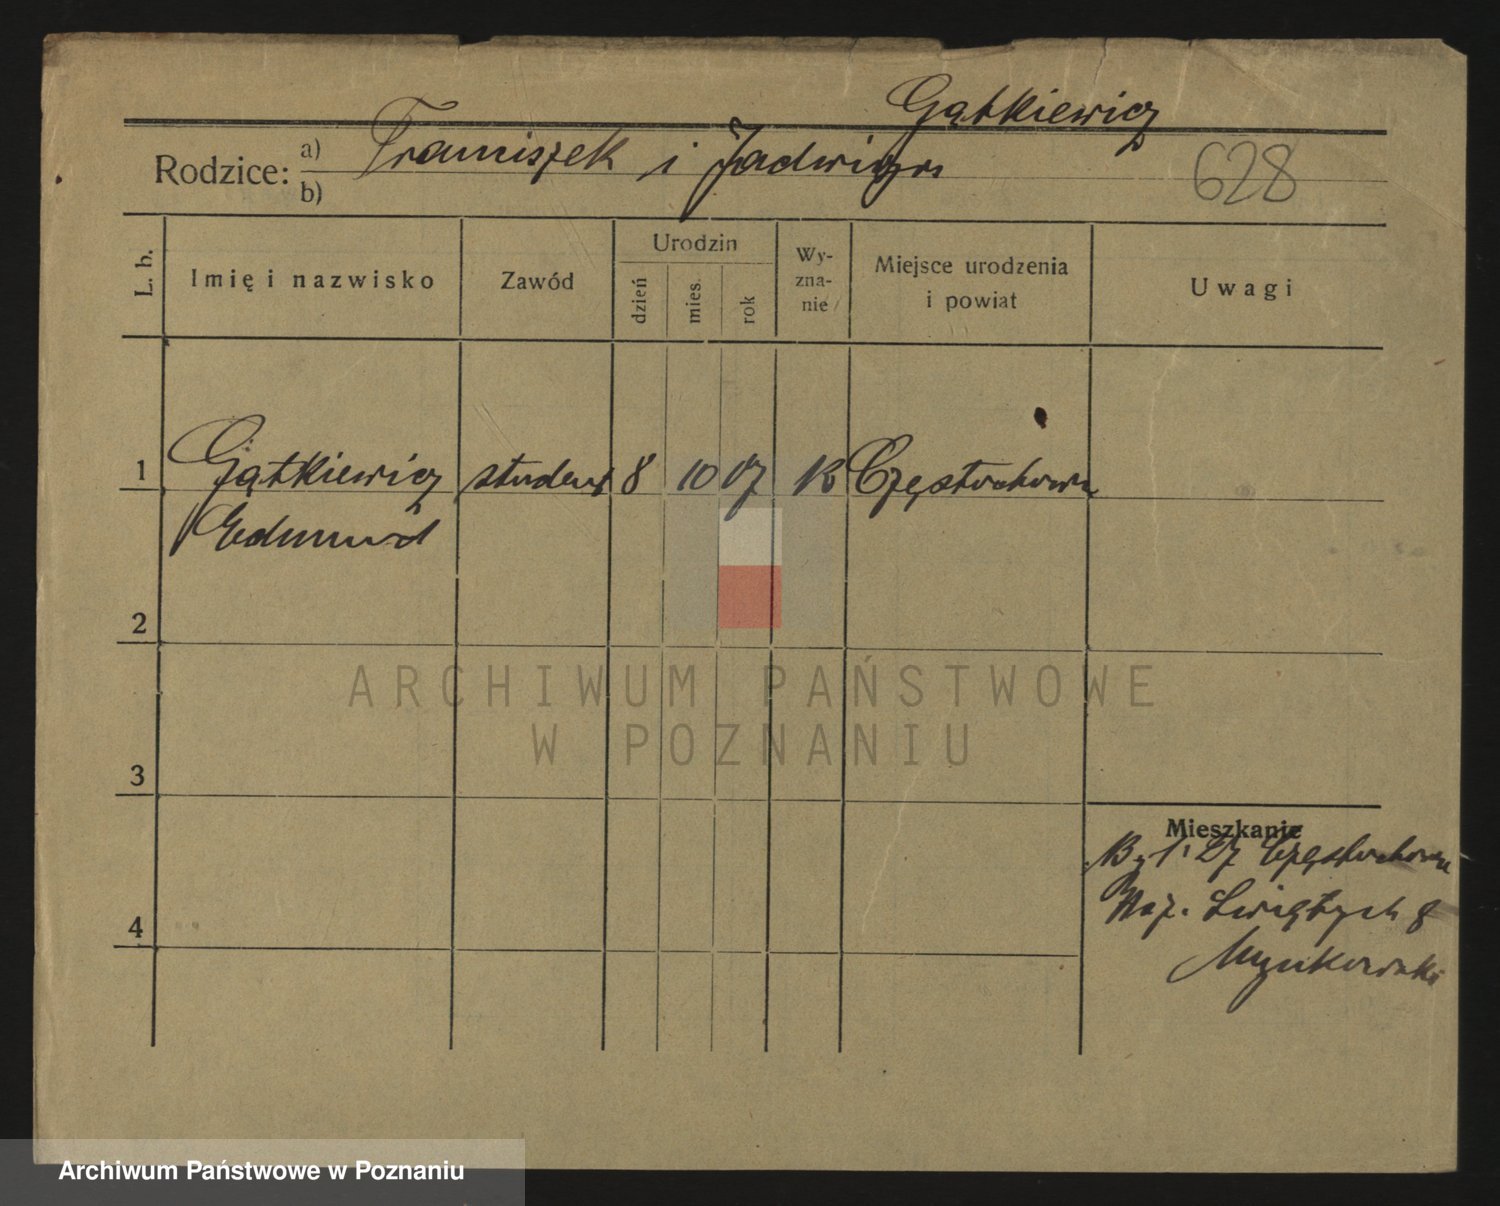 Gątkiewicz
Rodzice: a) Franciszek i Jadwiga
b)
628
L. b.
Imię i nazwisko
Zawód
Urodzin
dzień
mies.
rok
Wy-
zna-
nie
Miejsce urodzenia
i powiat
Uwagi
1 Gątkiewicz student 8 10 07 K Częstochowa
Edmund
2
3
4
Mieszkanie
27 Częstochowa
Świętych 8
ARCHIWUM PAŃSTWOWE
W POZNANIU
Archiwum Państwowe w Poznaniu